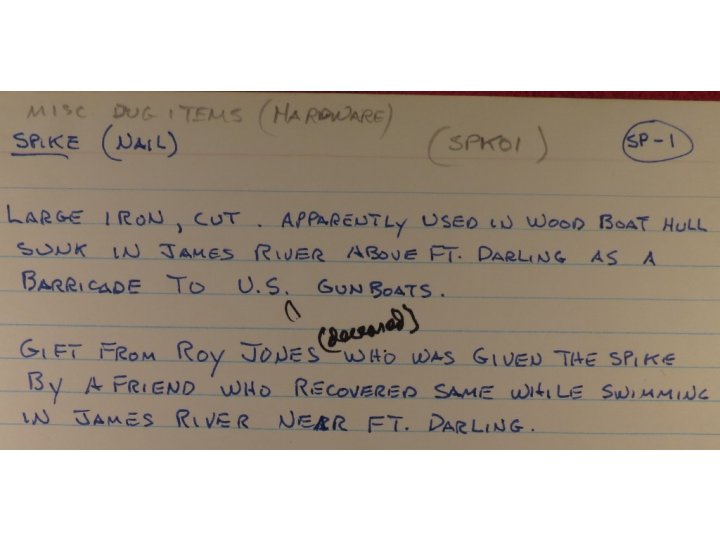 MISC DUG ITEMS (HARDWARE)
SPIKE (NAIL) (SPK01) SP-1
LARGE IRON, CUT. APPARENTLY USED IN WOOD BOAT HULL
SUNK IN JAMES RIVER ABOVE FT. DARLING AS A
BARRICADE TO U.S. GUNBOATS.
(deceased)
GIFT FROM ROY JONES WHO WAS GIVEN THE SPIKE
BY A FRIEND WHO RECOVERED SAME WHILE SWIMMING
IN JAMES RIVER NEAR FT. DARLING.